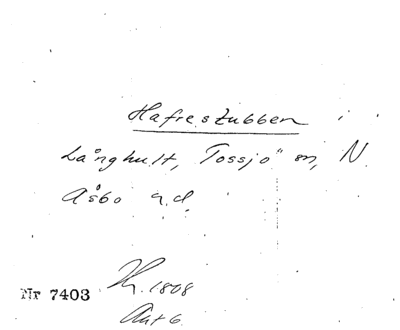 Hafrestubben
Långhult, Tossjö sn, N.
Åsbo hd.
Nr 7403
1808
Akt 6